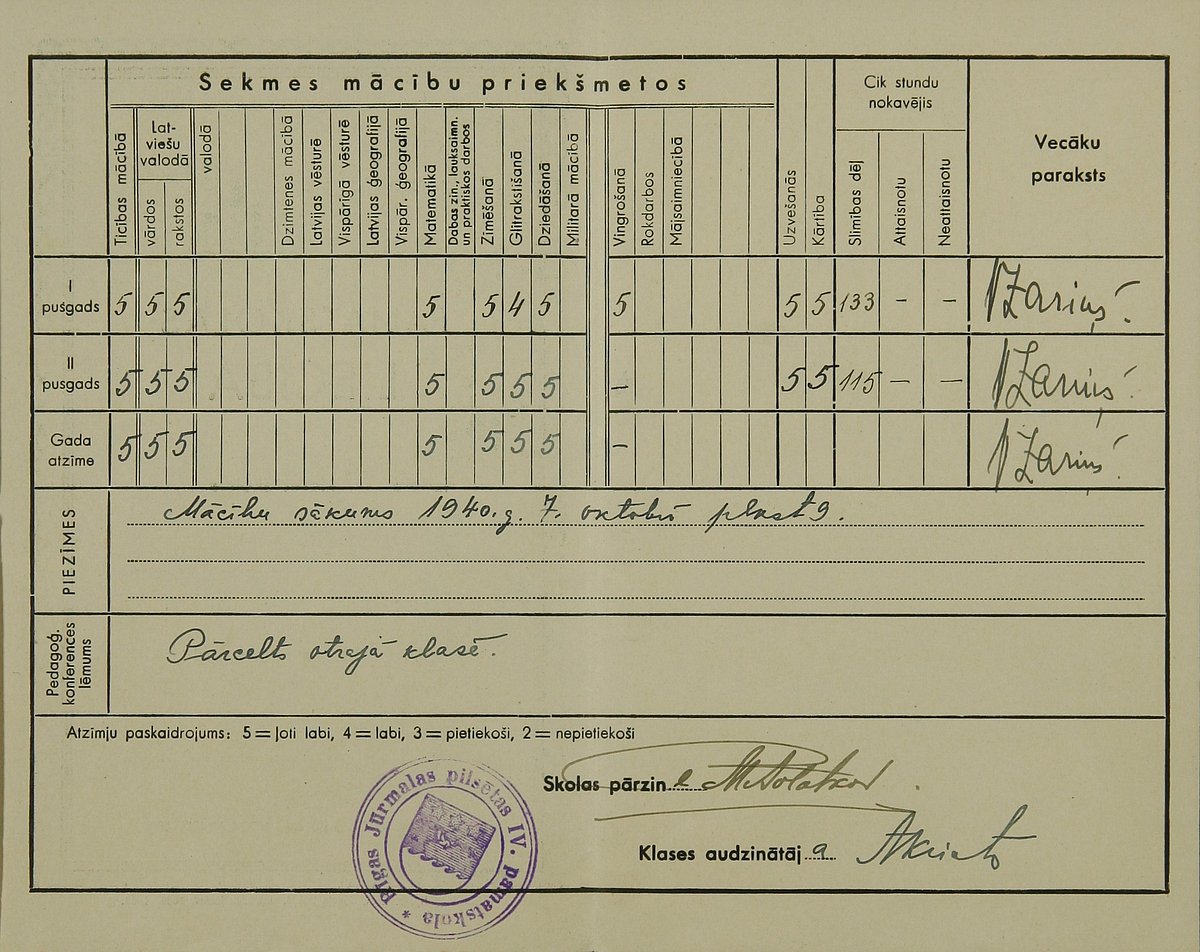 Sekmes mācību priekšmetos
Cik stundu
nokavējis
Vecāku
paraksts
Ticības mācībā
Lat-
viešu
valodā
vārdos
rakstos
valodā
Dzimtenes mācībā
Latvijas vēsturē
Vispārīgā vēsturē
Latvijas ģeografijā
Vispār. ģeografijā
Matematikā
Dabas zin., lauksaimn.
un praktiskos darbos
Zīmēšanā
Glītrakstīšanā
Dziedāšanā
Militārā mācībā
Vingrošanā
Rokdarbos
Mājsaimniecībā
Uzvešanās
Kārtība
Slimības dēļ
Attaisnotu
Neattaisnotu
I
pusgads
5 5 5 5 5 4 5 5 5 5 133 – – Zariņš
II
pusgads
5 5 5 5 5 5 5 – 5 5 115 – – Zariņš
Gada
atzīme
5 5 5 5 5 5 5 – Zariņš
PIEZĪMES
Mācību sākums 1940. g. 7. oktobrī plkst 9.
Pedagoģ.
konferences
lēmums
Pārcelts otrajā klasē.
Atzīmju paskaidrojums: 5 = ļoti labi, 4 = labi, 3 = pietiekoši, 2 = nepietiekoši
Skolas pārzin
Klases audzinātāj a
Rīgas Jūrmalas pilsētas IV. pamatskola *